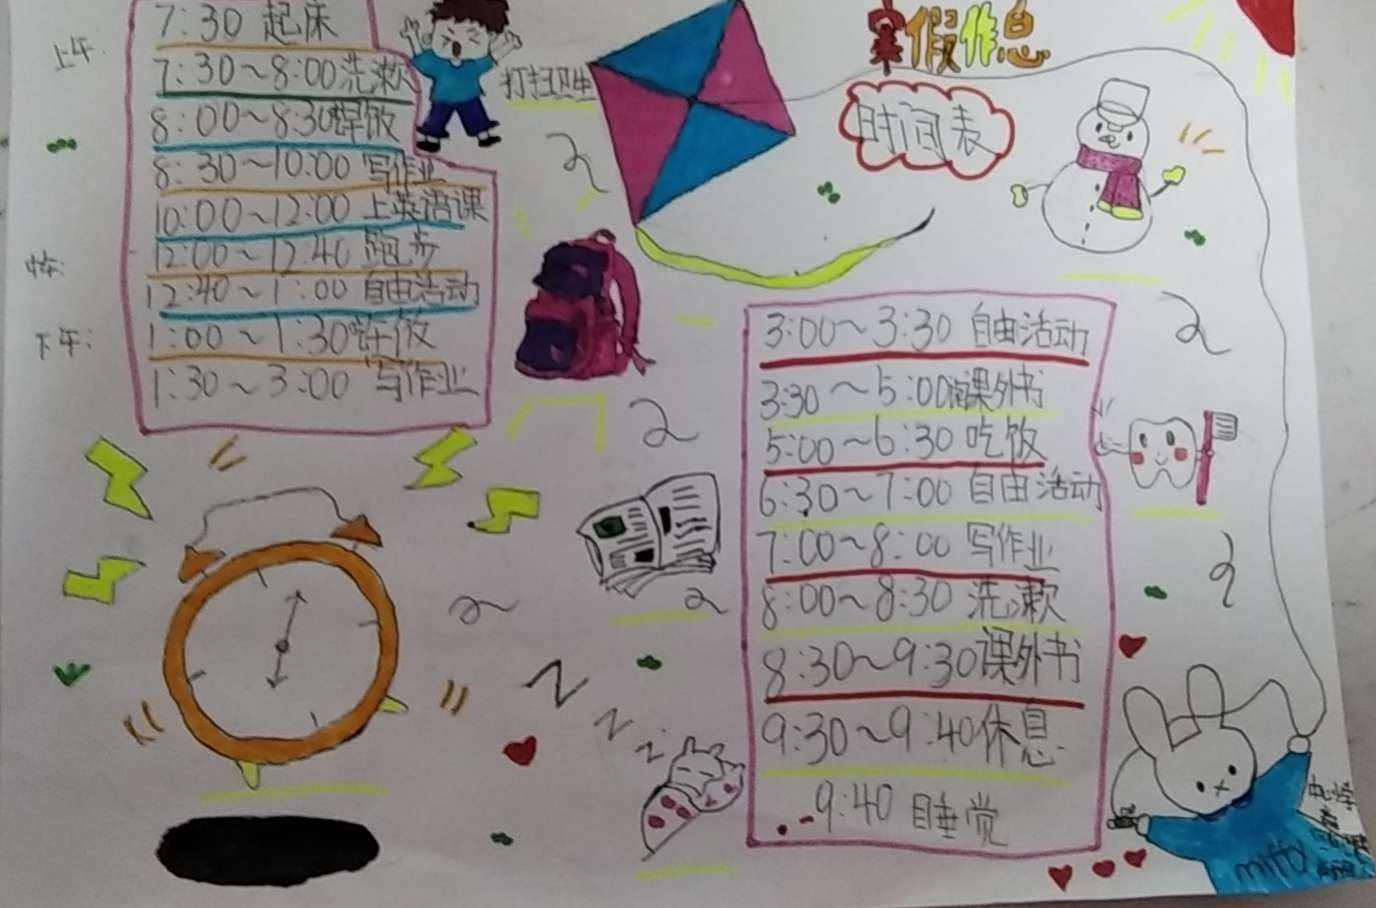 寒假作息
时间表
上午:
7:30 起床
7:30~8:00洗漱
打扫卫生
8:00~8:30早饭
8:30~10:00 写作业
10:00~12:00 上英语课
12:00~12:40 跑步
12:40~1:00 自由活动
下午:
1:00~1:30午饭
1:30~3:00 写作业
3:00~3:30 自由活动
3:30~5:00课外书
5:00~6:30 吃饭
6:30~7:00 自由活动
7:00~8:00 写作业
8:00~8:30 洗漱
8:30~9:30课外书
9:30~9:40休息
9:40 睡觉
miffy